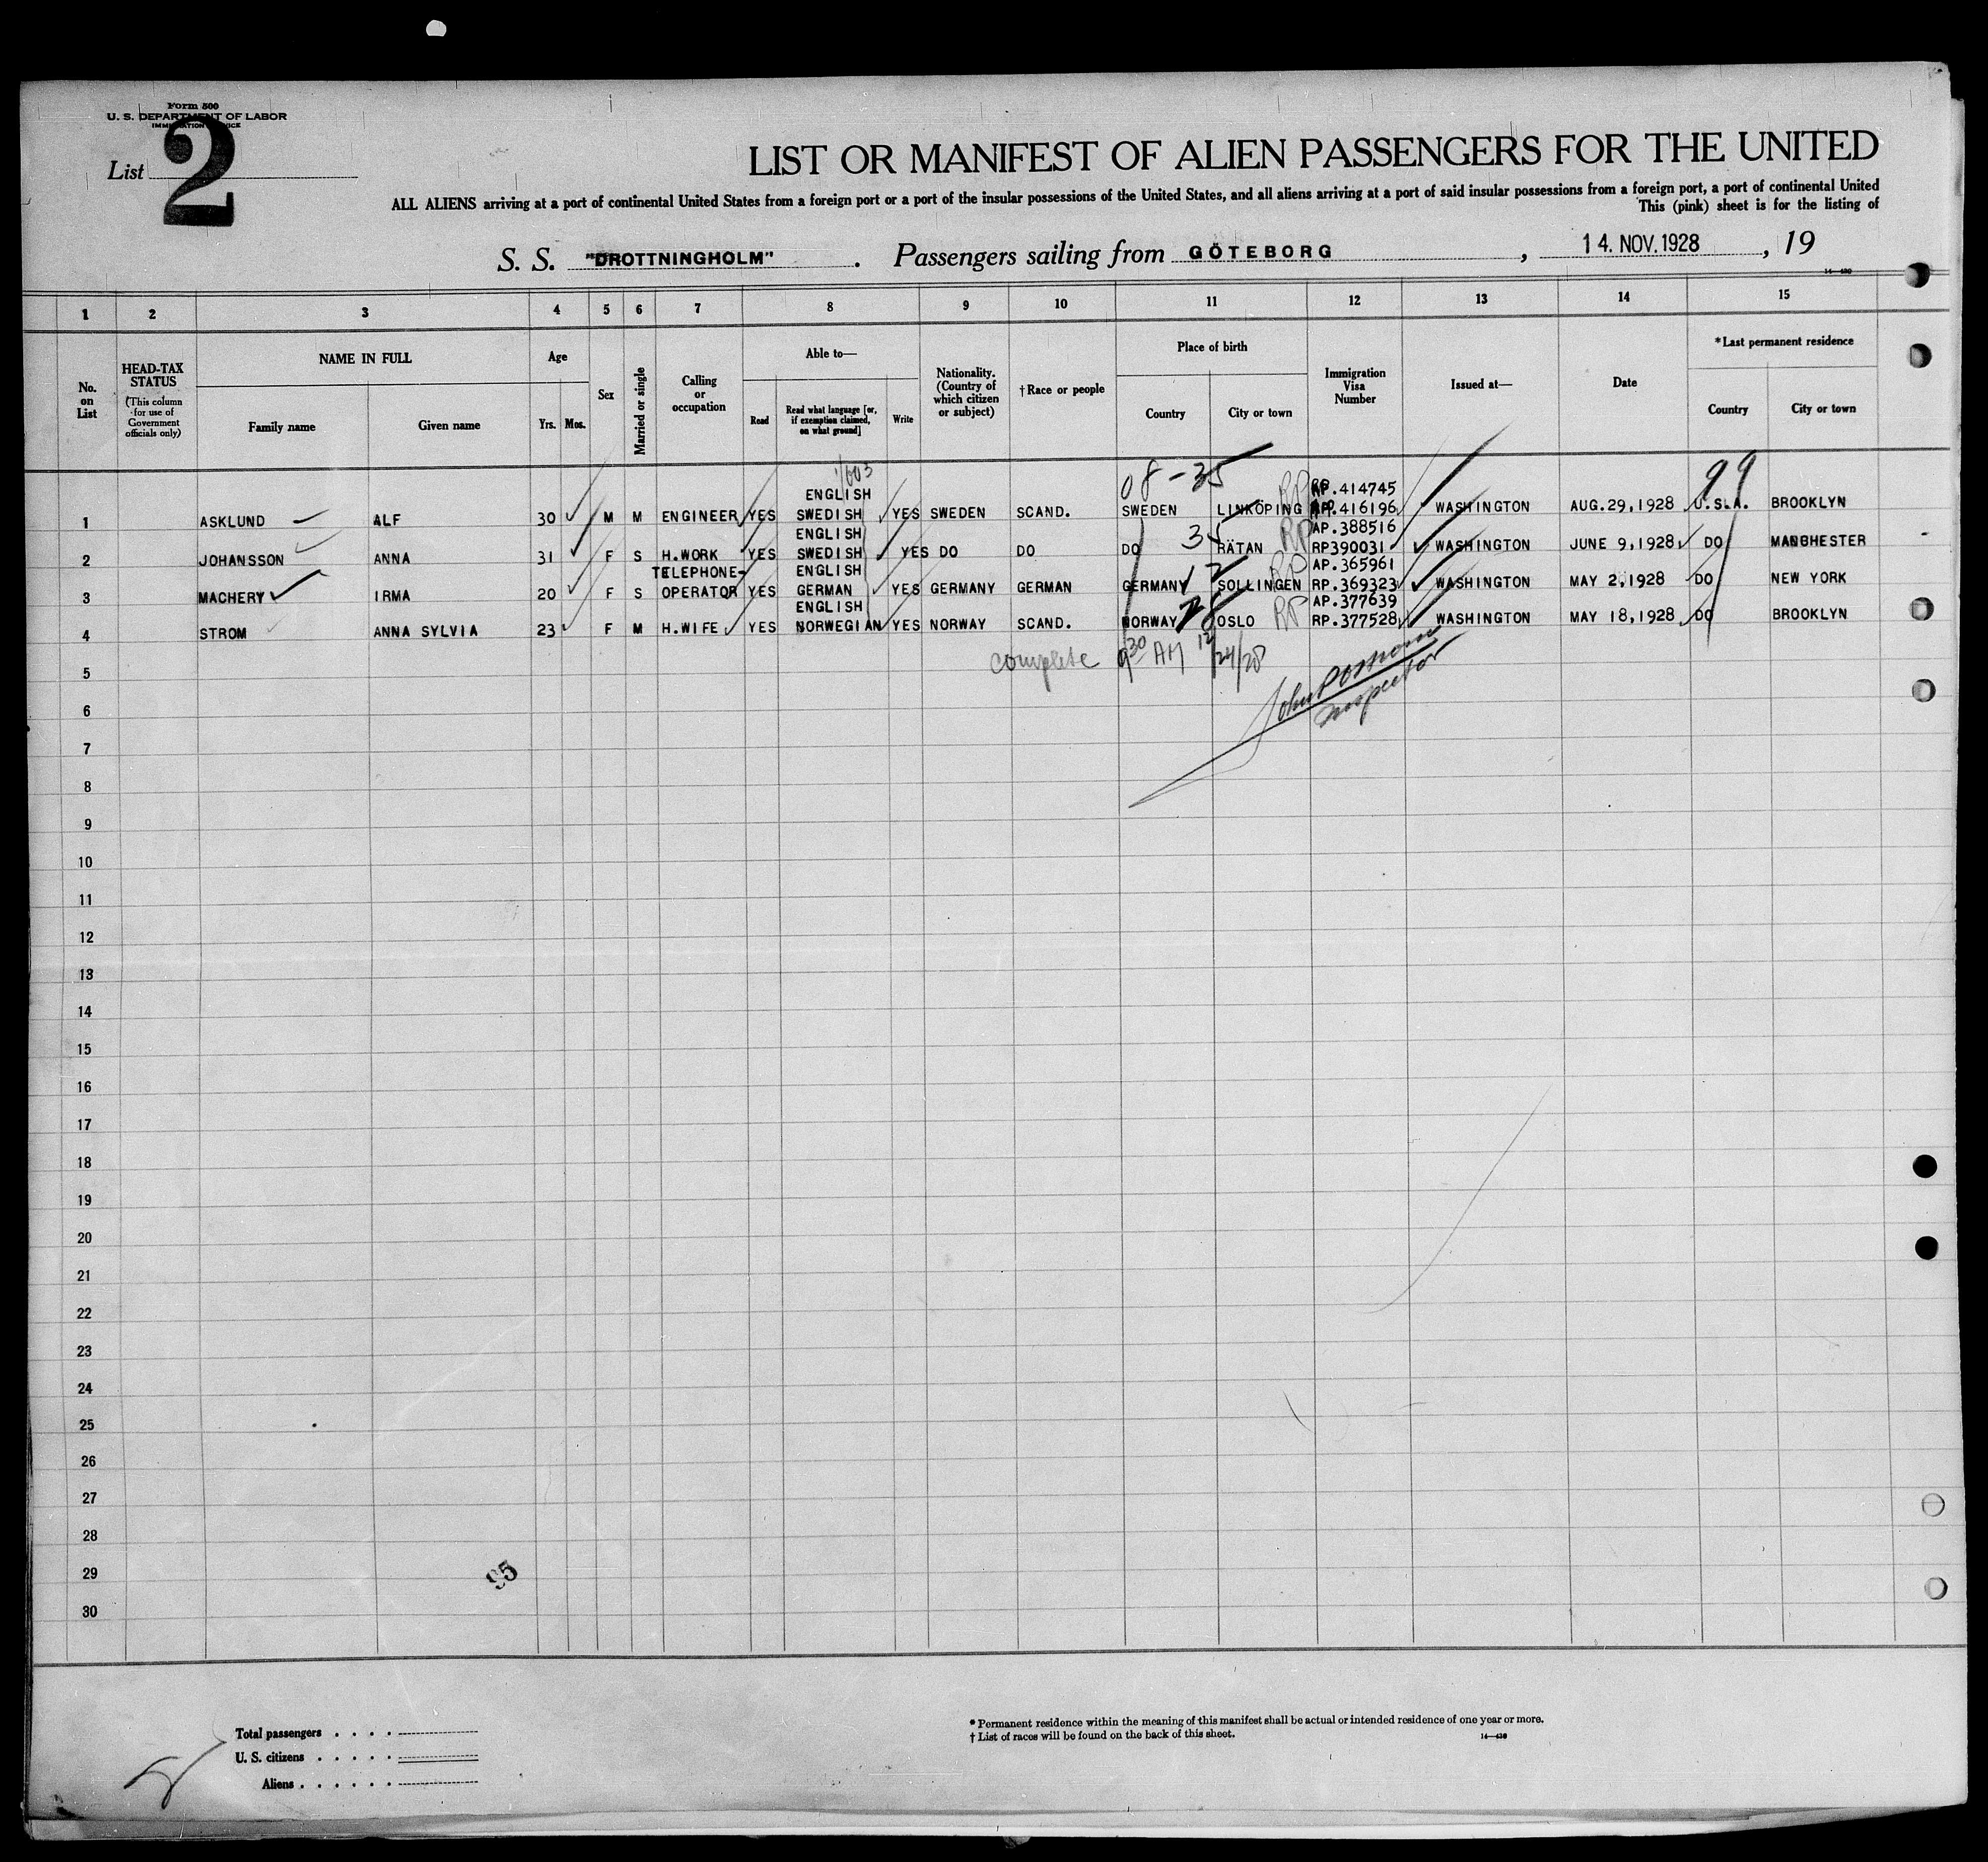 Form 500
U. S. DEPARTMENT OF LABOR
IMMIGRATION SERVICE
List 2
LIST OR MANIFEST OF ALIEN PASSENGERS FOR THE UNITED
ALL ALIENS arriving at a port of continental United States from a foreign port or a port of the insular possessions of the United States, and all aliens arriving at a port of said insular possessions from a foreign port, a port of continental United
This (pink) sheet is for the listing of
S. S. "DROTTNINGHOLM" . Passengers sailing from GÖTEBORG , 14. NOV. 1928 , 19
1 2 3 4 5 6 7 8 9 10 11 12 13 14 15
No. on List
HEAD-TAX STATUS
(This column for use of Government officials only)
NAME IN FULL
Family name Given name
Age
Yrs. Mos.
Sex
Married or single
Calling or occupation
Able to—
Read Read what language [or, if exemption claimed, on what ground] Write
Nationality. (Country of which citizen or subject)
†Race or people
Place of birth
Country City or town
Immigration Visa Number
Issued at—
Date
*Last permanent residence
Country City or town
08-35 99
ENGLISH RP.414745
1 ASKLUND ALF 30 M M ENGINEER YES SWEDISH YES SWEDEN SCAND. SWEDEN LINKÖPING RP .416196 WASHINGTON AUG.29,1928 U.S.A. BROOKLYN
ENGLISH 35 RP AP.388516
2 JOHANSSON ANNA 31 F S H.WORK YES SWEDISH YES DO DO DO RÄTAN RP390031 WASHINGTON JUNE 9,1928 DO MANCHESTER
TELEPHONE- ENGLISH 12 RP AP.365961
3 MACHERY IRMA 20 F S OPERATOR YES GERMAN YES GERMANY GERMAN GERMANY SOLLINGEN RP.369323 WASHINGTON MAY 2,1928 DO NEW YORK
ENGLISH 28 RP AP.377639
4 STROM ANNA SYLVIA 23 F M H.WIFE YES NORWEGIAN YES NORWAY SCAND. NORWAY OSLO RP.377528 WASHINGTON MAY 18,1928 DO BROOKLYN
5 complete 9 30 AM 12/24/28
6 Inspector
7
8
9
10
11
12
13
14
15
16
17
18
19
20
21
22
23
24
25
26
27
28
29
95
30
Total passengers . . . .
U. S. citizens . . . . .
Aliens . . . . . .
* Permanent residence within the meaning of this manifest shall be actual or intended residence of one year or more.
† List of races will be found on the back of this sheet.